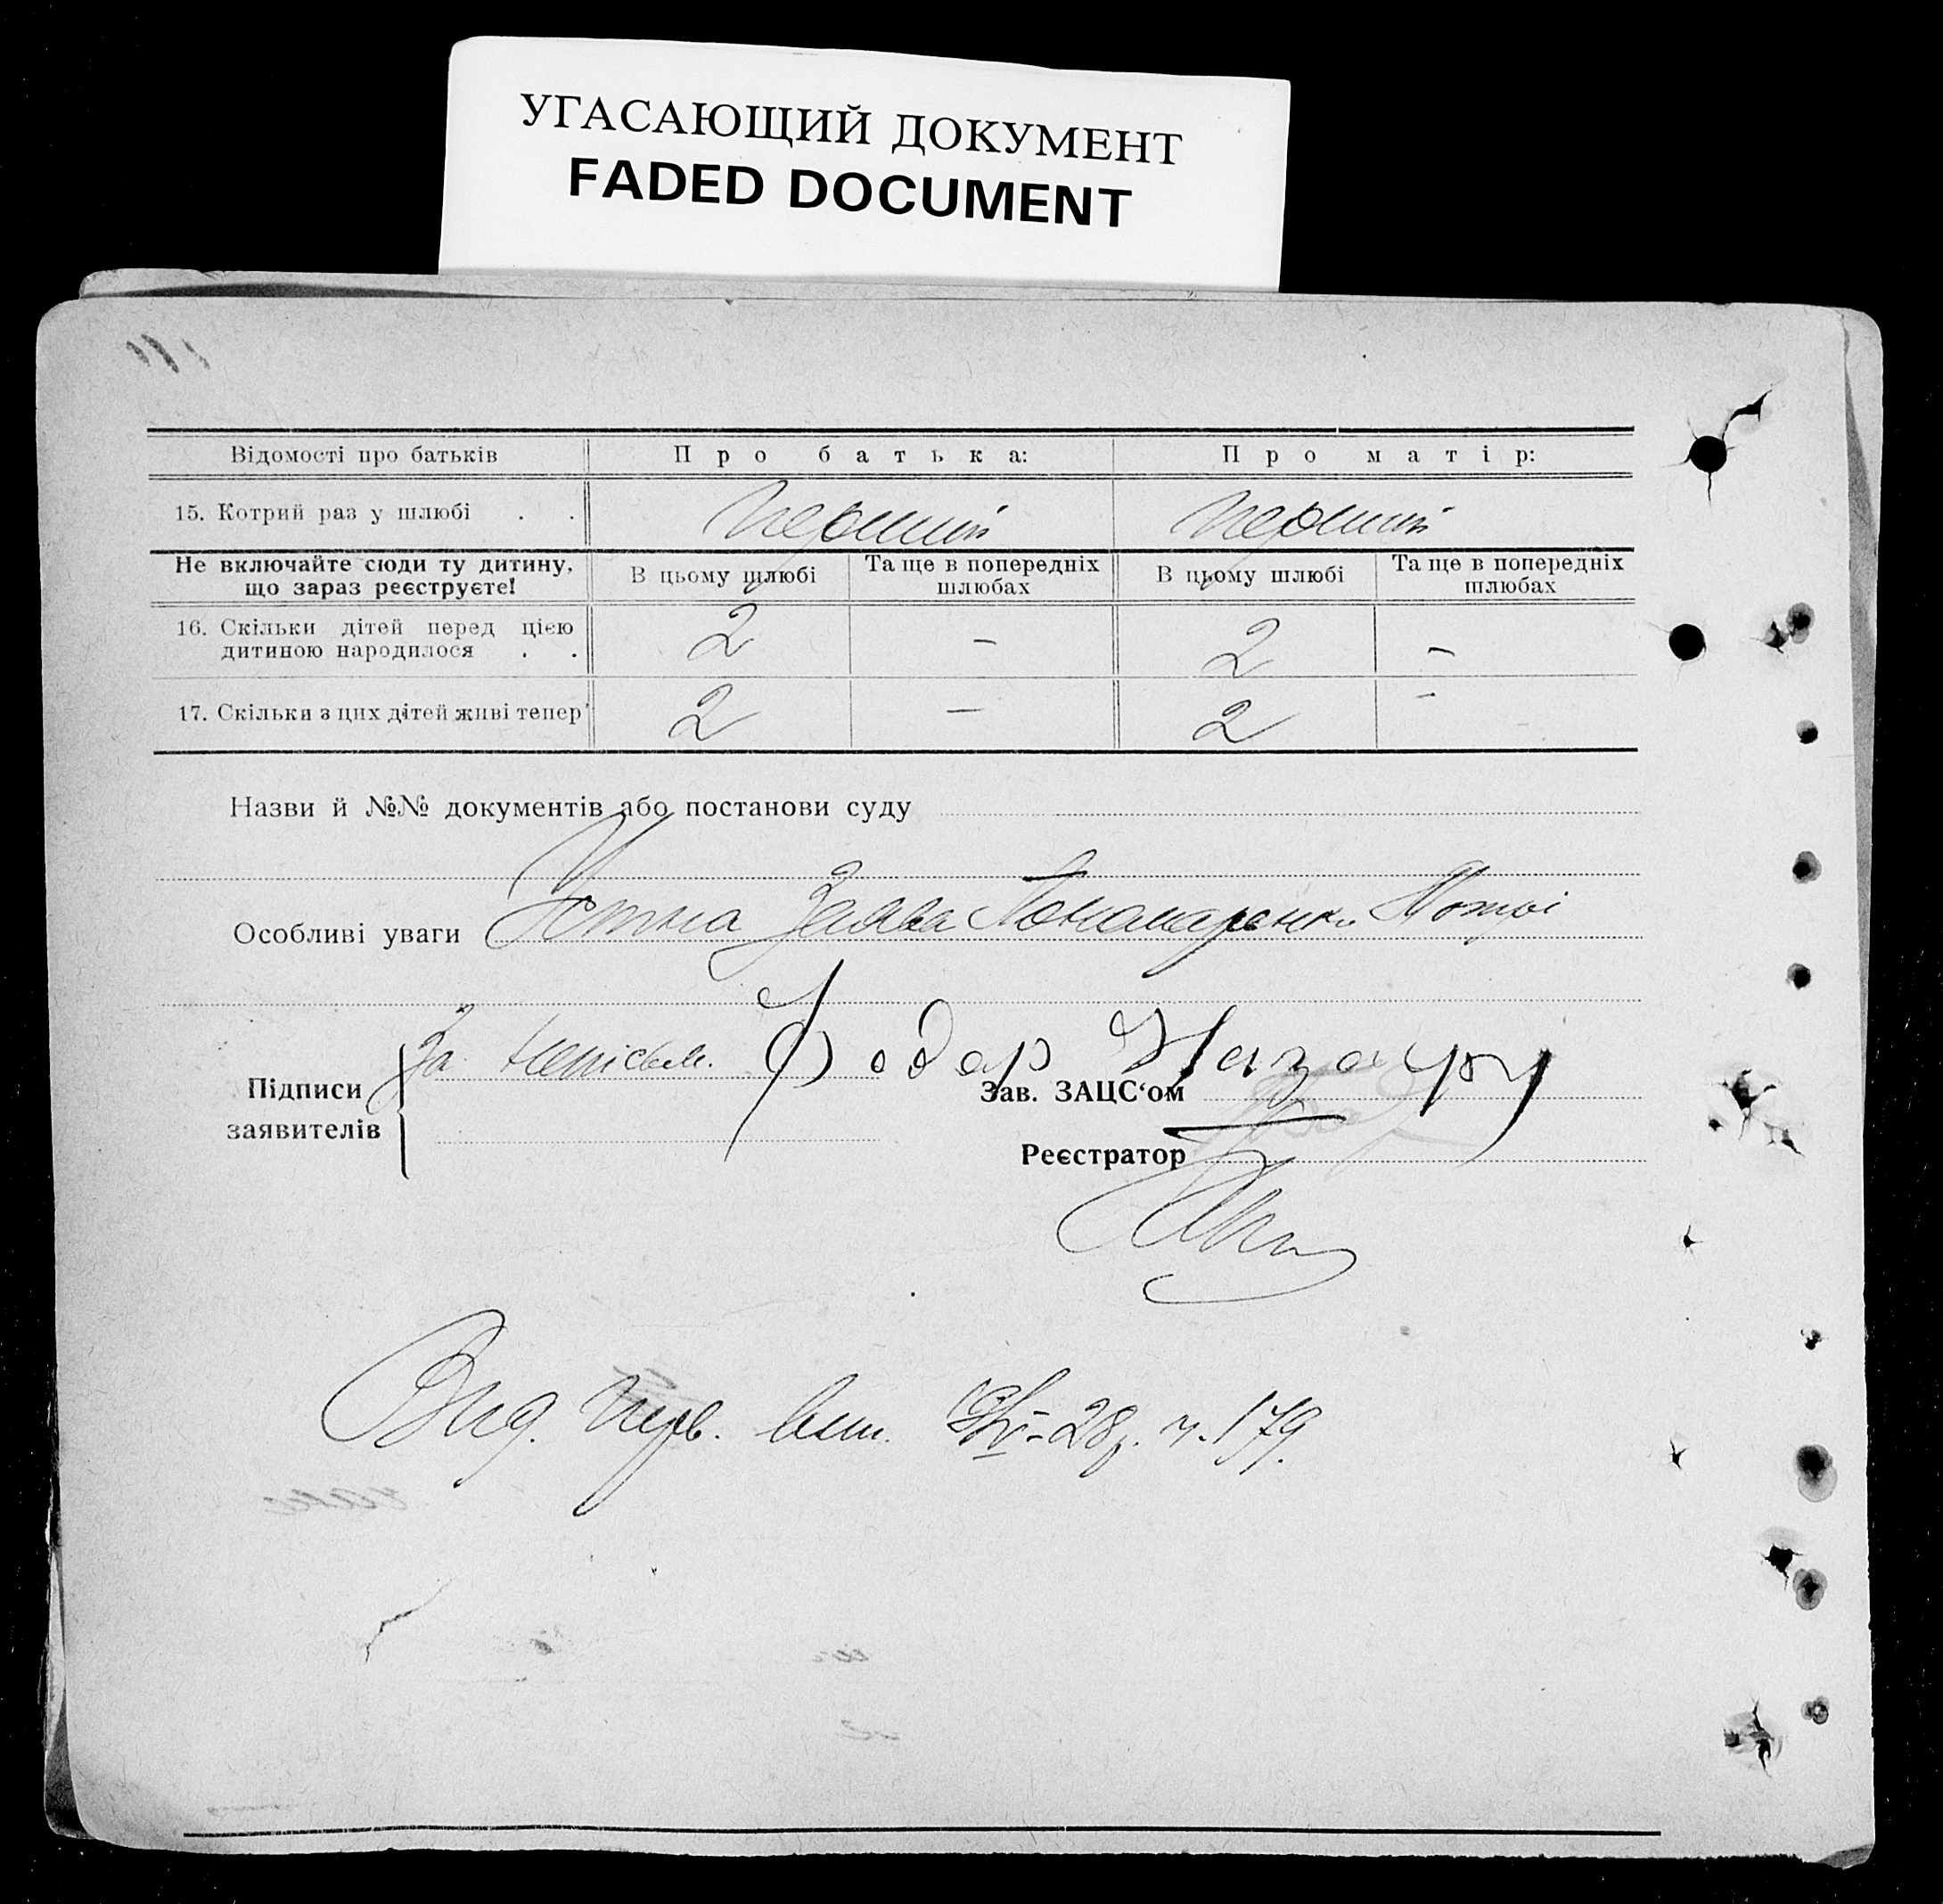 УГАСАЮЩИЙ ДОКУМЕНТ
FADED DOCUMENT
Відомості про батьків Про батька: Про матір:
15. Котрий раз у шлюбі . . перший перший
Не включайте сюди ту дитину, що зараз реєструєте! В цьому шлюбі Та ще в попередніх шлюбах В цьому шлюбі Та ще в попередніх шлюбах
16. Скільки дітей перед цією
дитиною народилося . . 2 – 2 –
17. Скільки з цих дітей живі тепер 2 – 2 -
Назви й №№ документів або постанови суду
Особливі уваги Устна Заява Понамаренко Мотрі
За непісьм. Фодар Назару
Підписи
заявителів
Зав. ЗАЦС‘ом
Реєстратор
Вид. перв. вип. -28р. ч. 179.